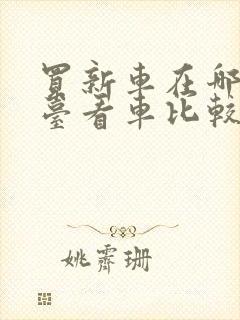 買新車在哪
臺看車比較
姚霽珊